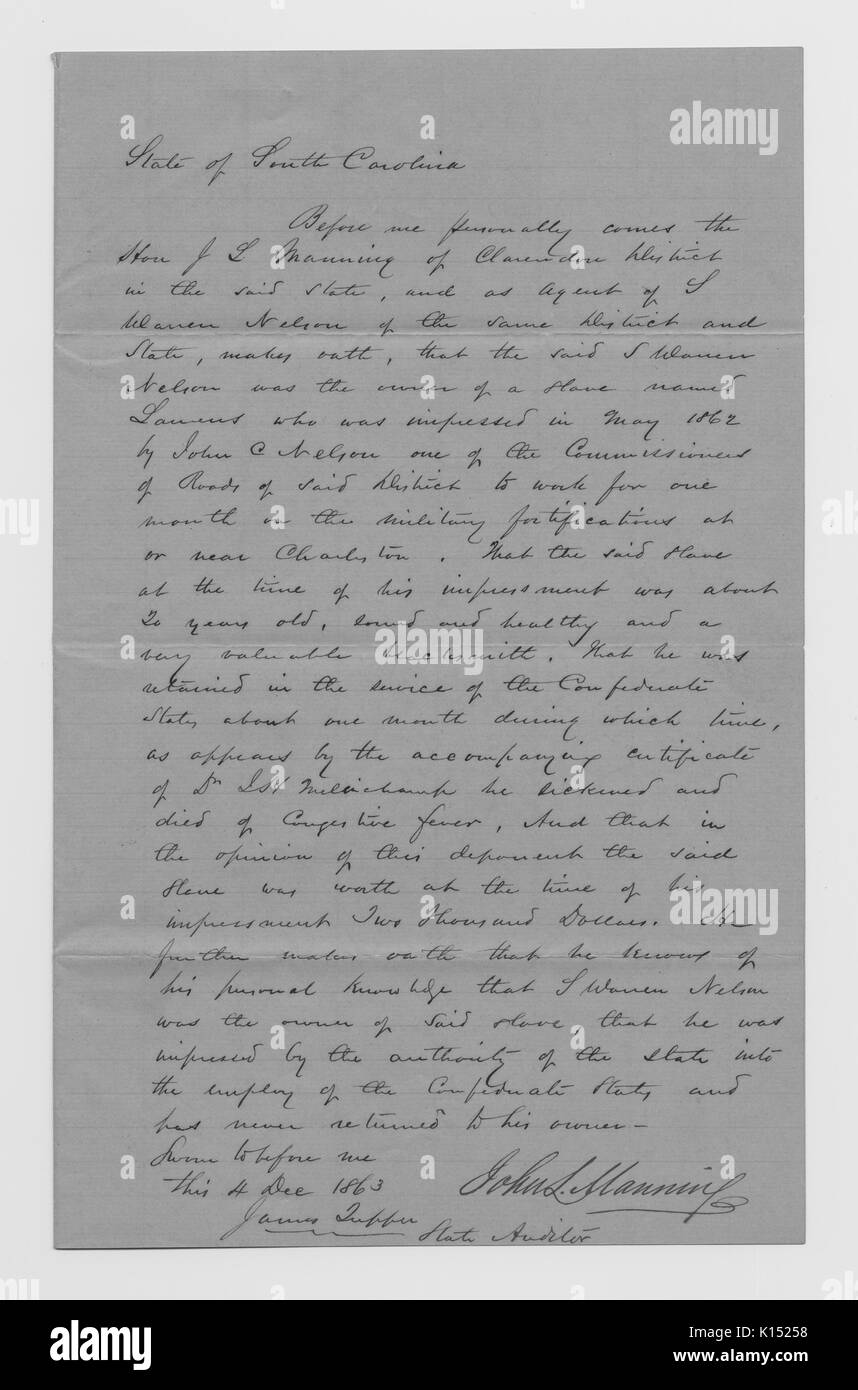 State of South Carolina
Before me personally comes the
Hon J L Manning of Clarendon District
in the said State, and as agent of S
Warren Nelson of the same District and
State, makes oath, that the said S Warren
Nelson was the owner of a slave named
Laurens who was impressed in May 1862
by John C Nelson one of the Commissioners
of Roads of said District to work for one
month on the military fortifications at
or near Charleston. That the said slave
at the time of his impressment was about
20 years old, sound and healthy and a
very valuable blacksmith. That he was
retained in the service of the Confederate
States about one month during which time,
as appears by the accompanying certificate
of Dr Mellichamp he sickened and
died of Congestive fever, And that in
the opinion of this deponent the said
slave was worth at the time of his
impressment Two thousand Dollars. He
further makes oath that he knows of
his personal knowledge that S Warren Nelson
was the owner of said slave, that he was
impressed by the authority of the State into
the employ of the Confederate States and
has never returned to his owner—
Sworn to before me
this 4 Dec 1863
John L. Manning
James Tupper
State Auditor
alamy
alamy stock photo
K15258
www.alamy.com